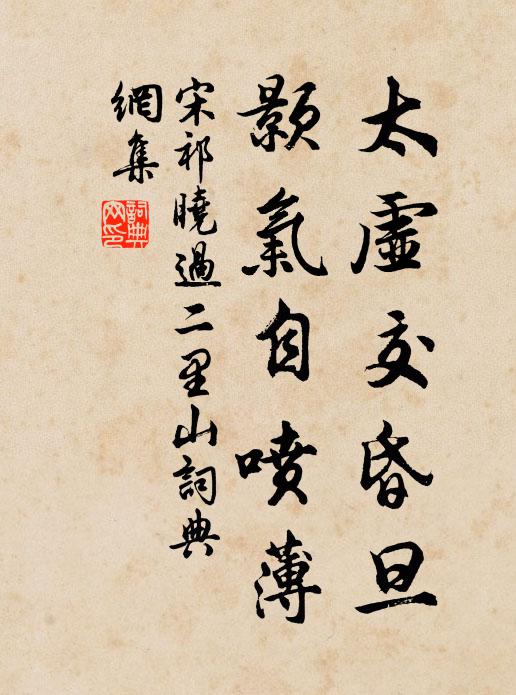 太虛交昏旦
顥氣自噴薄
宋祁曉過二里山詞典
網集
詞典
網印